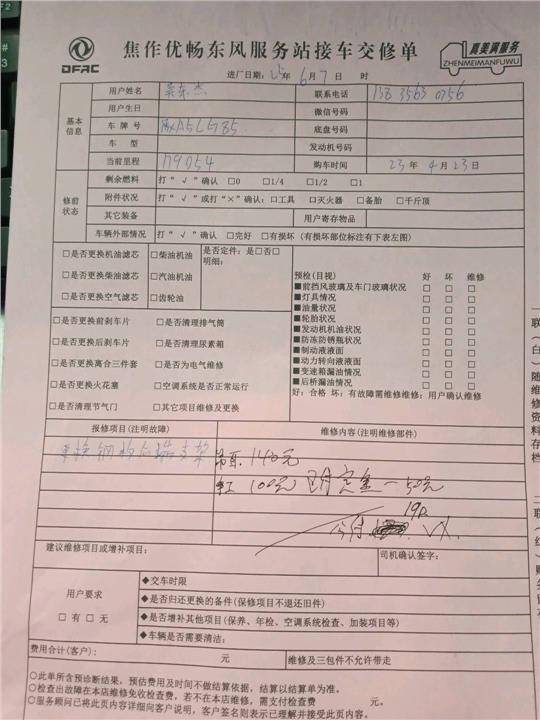 DFAC
焦作优畅东风服务站接车交修单
真美满服务
ZHENMEIMANFUWU
进厂日期：25年6月7日 时
基本信息
用户姓名 东杰 联系电话
用户生日 微信号码
车牌号 底盘号码
车型 发动机号码
当前里程 179054 购车时间 23年4月23日
修前状态
剩余燃料 打“√”确认 □0 □1/4 □1/2 □1
附件状况 打“√”或打“×”确认：□工具 □灭火器 □备胎 □千斤顶
其它装备 用户寄存物品
车辆外部情况 打“√”确认 □完好 □有损坏（有损坏部位标注有下表左图）
□是否更换机油滤芯 □柴油机油
□是否更换柴油滤芯 □汽油机油
□是否更换空气滤芯 □齿轮油
是否定件：是□否□
明细：
□是否更换前刹车片 □是否清理排气筒
□是否更换后刹车片 □是否清理尿素箱
□是否更换离合三件套 □是否为电气维修
□是否更换火花塞 □空调系统是否正常运行
□是否清理节气门 □其它项目维修及更换
预检(目视) 好 坏 维修
■前挡风玻璃及车门玻璃状况 □ □ □
■灯具情况 □ □ □
■油量状况 □ □ □
■轮胎状况 □ □ □
■发动机机油状况 □ □ □
■防冻防锈瓶状况 □ □ □
■制动液液面 □ □ □
■动力转向液液面 □ □ □
■变速箱漏油情况 □ □ □
■后桥漏油情况 □ □ □
好：合格 坏：有故障需维修维修：用户确认维修
报修项目(注明故障) 维修内容(注明维修部件)
更换钢板后端支架 吊耳 140元
工 100元 定金-50元
190
VX.
建议维修项目或增补项目： 司机确认签字：
用户要求
□有 □无
◆交车时限
◆是否归还更换的备件(保修项目不退还旧件)
◆是否增补其他项目(保养、年检、空调系统检查、加装项目等)
◆车辆是否需要清洁：
费用合计(客户)： 元 维修及三包件不允许带走
○此单所含预诊断结果，预估费用及时间不做结算依据，结算以结算单为准。
○检查出故障在本店维修免收检查费，若不在本店维修，需支付检查费 元。
○服务顾问已将此页内容详细向客户说明，客户签名则表示已理解并接受此页内容。